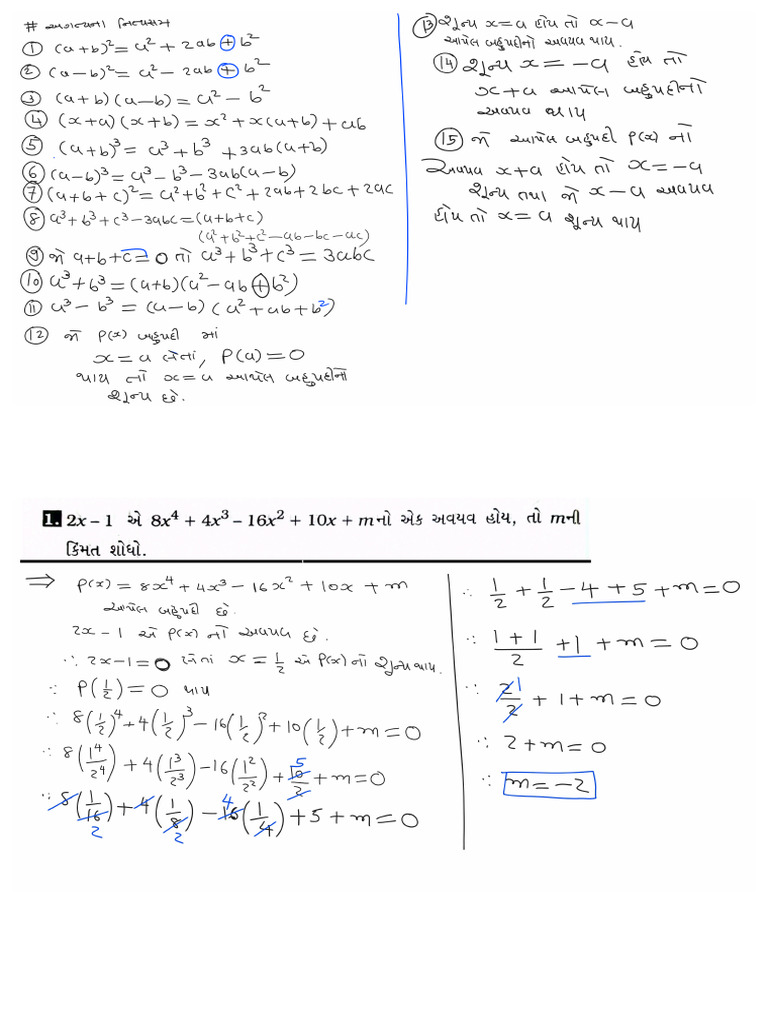 # અગત્યના નિત્યસમ
① (a+b)² = a² + 2ab + b²
② (a-b)² = a² - 2ab + b²
③ (a+b)(a-b) = a² - b²
④ (x+a)(x+b) = x² + x(a+b) + ab
⑤ (a+b)³ = a³ + b³ + 3ab(a+b)
⑥ (a-b)³ = a³ - b³ - 3ab(a-b)
⑦ (a+b+c)² = a² + b² + c² + 2ab + 2bc + 2ac
⑧ a³ + b³ + c³ - 3abc = (a+b+c)
(a² + b² + c² - ab - bc - ac)
⑨ જો a+b+c = 0 તો a³ + b³ + c³ = 3abc
⑩ a³ + b³ = (a+b)(a² - ab + b²)
⑪ a³ - b³ = (a-b)(a² + ab + b²)
⑫ જો P(x) બહુપદી માં
x = a લેતાં, P(a) = 0
થાય તો x = a આપેલ બહુપદીનો
શૂન્ય છે.
⑬ શૂન્ય x = a હોય તો x - a
આપેલ બહુપદીનો અવયવ થાય.
⑭ શૂન્ય x = -a હોય તો
x + a આપેલ બહુપદીનો
અવયવ થાય
⑮ જો આપેલ બહુપદી P(x) નો
અવયવ x + a હોય તો x = -a
શૂન્ય તથા જો x - a અવયવ
હોય તો x = a શૂન્ય થાય
1. 2x – 1 એ 8x⁴ + 4x³ – 16x² + 10x + m નો એક અવયવ હોય, તો m ની
કિંમત શોધો.
⇒ P(x) = 8x⁴ + 4x³ - 16x² + 10x + m
આપેલ બહુપદી છે.
2x - 1 એ P(x) નો અવયવ છે.
∴ 2x - 1 = 0 લેતાં x = 1/2 એ P(x) નો શૂન્ય થાય.
∵ P(1/2) = 0 થાય
∵ 8(1/2)⁴ + 4(1/2)³ - 16(1/2)² + 10(1/2) + m = 0
∵ 8(1⁴/2⁴) + 4(1³/2³) - 16(1²/2²) + 10/2 5 + m = 0
∵ 8(1/16) 2 + 4(1/8) 2 - 16 4 (1/4) + 5 + m = 0
∵ 1/2 + 1/2 - 4 + 5 + m = 0
∵ 1+1/2 + 1 + m = 0
∵ 2/2 1 + 1 + m = 0
∵ 2 + m = 0
∵ m = -2